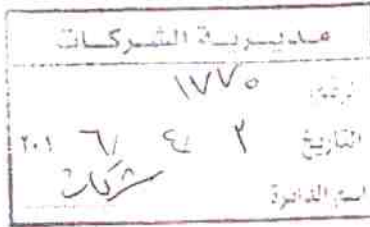 مديرية الشركات
الرقم ١٧٧٥
التاريخ ٢ / ٤ / ٢٠١٦
اسم الدائرة شركات